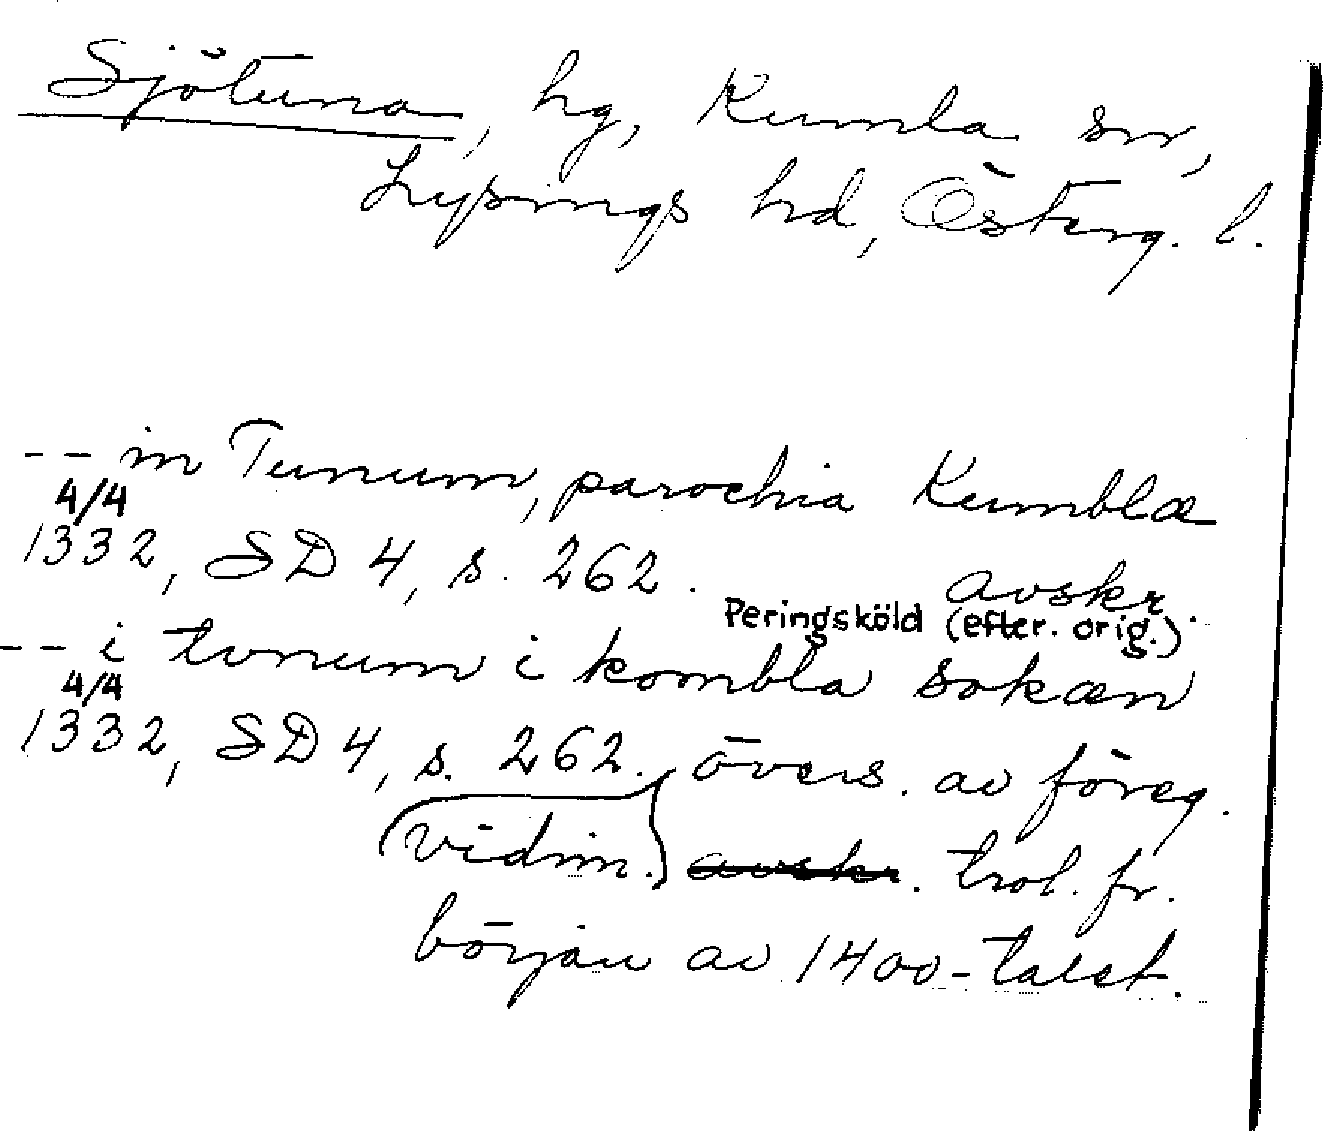 Sjötuna, hg, Kumla sn,
Lysings hd, Österg. l.
-- in Tunum, parochia Kumblæ
4/4
1332, SD 4, s. 262. avskr.
Peringsköld (efter. orig.)
-- i tvnum i kombla sokæn
4/4
1332, SD 4, s. 262. övers. av föreg.
(vidim.) avskr. trol. fr.
början av 1400-talet.